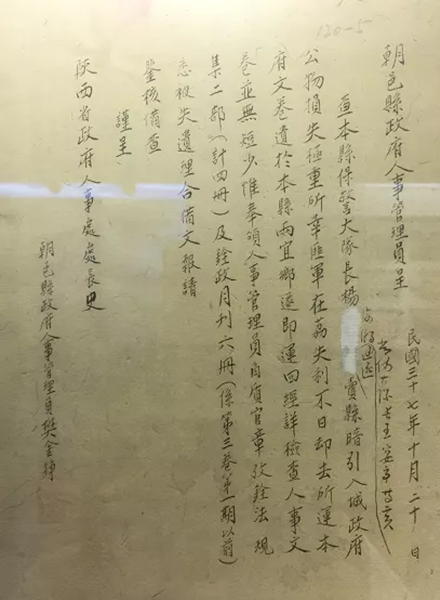 120-5
朝邑縣政府人事管理員呈
民國三十七年十月二十日
查本縣保警大隊長楊 賣縣暗引入城政府
公物損失極重所幸匪軍在荔失利不日却去所運本
府文卷遺於本縣兩宜鄉遂即運回經詳檢查人事文
卷並無短少惟奉領人事管理員自質官章攷銓法規
集二部(計四冊)及銓政月刊六冊(係第三卷第一期以前)
悉被失遺理合備文報請
鑒核備查
謹呈
陝西省政府人事處處長史
朝邑縣政府人事管理員樊金鐸